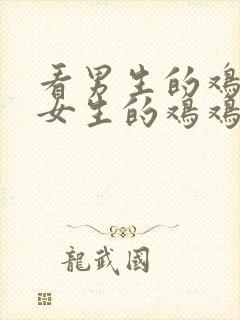 看男生的鸡
女生的鸡鸡
龍武國